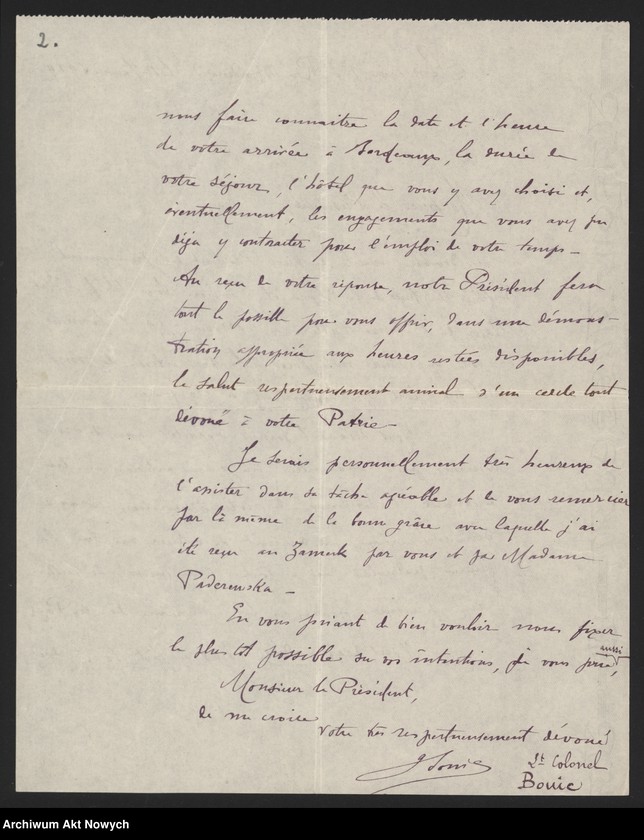 2.
nous faire connaitre la date et l'heure
de votre arrivée à Bordeaux, la durée de
votre séjour, l'hôtel que vous y avez choisi et,
éventuellement, les engagements que vous avez pu
déjà y contracter pour l'emploi de votre temps—
Au reçu de votre réponse, notre Président fera
tout le possible pour vous offrir, dans une démons-
tration appropriée aux heures restées disponibles,
le salut respectueusement amical d'un cercle tout
dévoué à votre Patrie—
Je serais personnellement très heureux de
l'assister dans sa tâche agréable et de vous remercier
par là même de la bonne grâce avec laquelle j'ai
été reçu au Zamek par vous et par Madame
Paderewska—
En vous priant de bien vouloir nous fixer
le plus tôt possible sur vos intentions, je vous prie aussi,
Monsieur le Président,
de me croire
votre très respectueusement dévoué
Lt Colonel
Bouic
Archiwum Akt Nowych